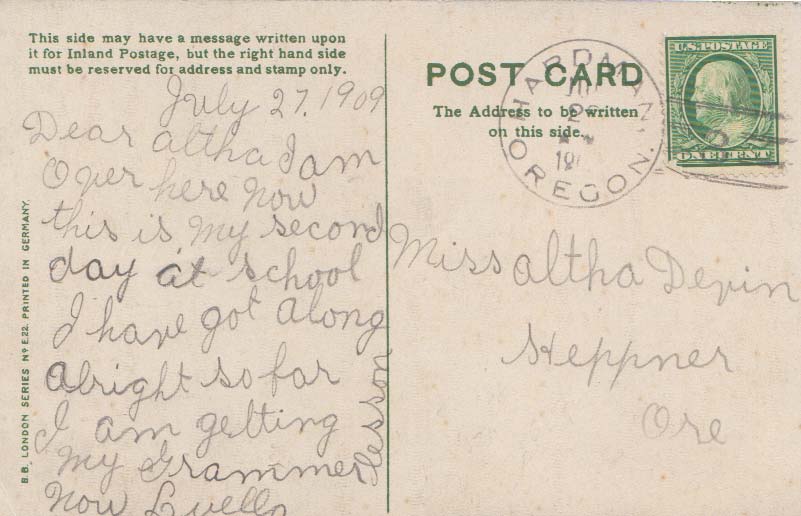 This side may have a message written upon
it for Inland Postage, but the right hand side
must be reserved for address and stamp only.
July 27, 1909
Dear altha I am
Over here now
this is my second
day at school
I have got along
alright so far
I am getting
my Grammer lesson
now Luella
B.B. LONDON SERIES No E.22. PRINTED IN GERMANY.
POST CARD
The Address to be written
on this side.
HARDMAN,
OREGON.
U.S. POSTAGE
ONE CENT
Miss altha Devin
Heppner
Ore